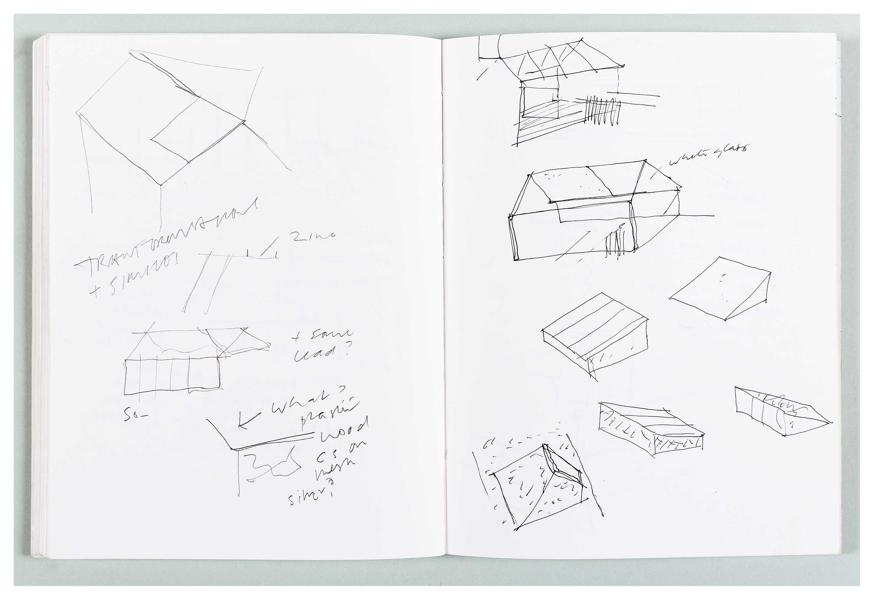 TRANSFORMATIONS
+
Zinc
+ same
lead?
So_
what?
plastic
wood
CS on
mesh
silver?
white glass